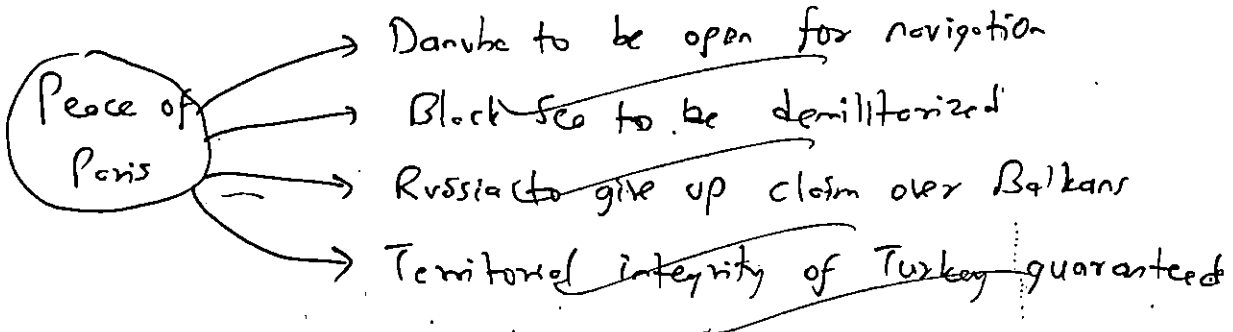 Peace of
Paris
Danube to be open for navigation
Black Sea to be demillitarized
Russia to give up claim over Balkans
Territorial integrity of Turkey guaranteed